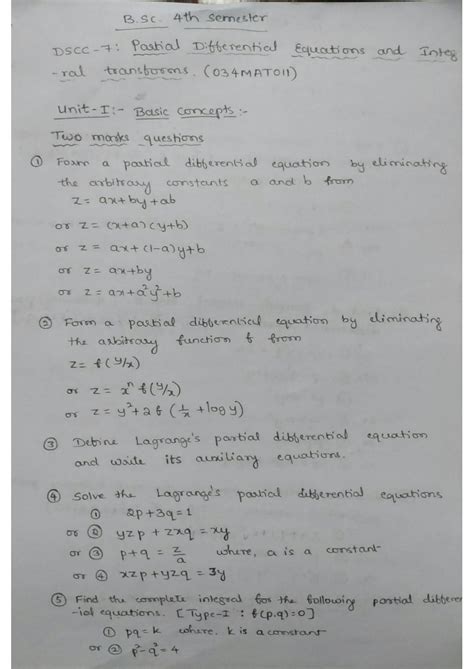 B.Sc. 4th semester
DSCC-7: Partial Differential Equations and Integ
-ral transforms. (034MAT011)
Unit-I:- Basic concepts:-
Two marks questions
① Form a partial differential equation by eliminating
the arbitrary constants a and b from
z = ax+by+ab
or z = (x+a)(y+b)
or z = ax+(1-a)y+b
or z = ax+by
or z = ax+a²y²+b
② Form a partial differential equation by eliminating
the arbitrary function f from
z = f(y/x)
or z = xⁿ f(y/x)
or z = y²+2f(1/x + log y)
③ Define Lagrange's partial differential equation
and write its auxiliary equations.
④ Solve the Lagrange's partial differential equations
① 2p+3q=1
or ② yzp + zxq = xy
or ③ p+q = z/a where, a is a constant
or ④ xzp+yzq = 3y
⑤ Find the complete integral for the following partial differen
-ial equations. [Type-I : f(p,q)=0]
① pq=k where, k is a constant
or ② p²-q²=4